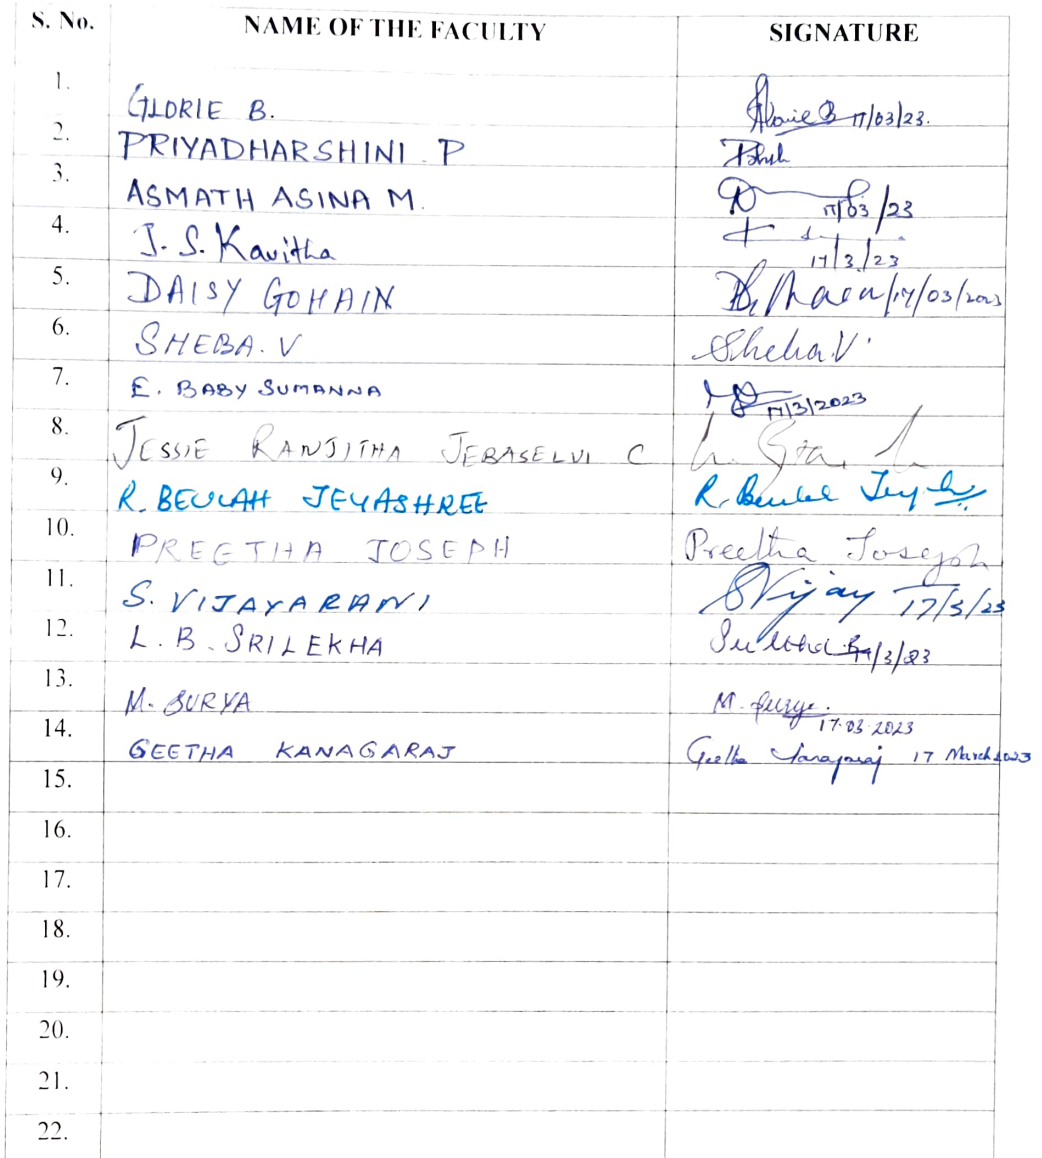 S. No. NAME OF THE FACULTY SIGNATURE
1. GLORIE B. Glorie B 17/03/23.
2. PRIYADHARSHINI . P
3. ASMATH ASINA M. 17/03/23
4. J. S. Kavitha 17/3/23
5. DAISY GOHAIN /17/03/2023
6. SHEBA. V Sheba V.
7. E. BABY SUMANNA 17/3/2023
8. JESSIE RANJITHA JEBASELVI C
9. R. BEULAH JEYASHREE R. Beulah
10. PREETHA JOSEPH Preetha Joseph
11. S. VIJAYARANI SVijay 17/3/23
12. L. B. SRILEKHA 17/3/23
13. M. SURYA M. Surya.
17.03.2023
14. GEETHA KANAGARAJ Geetha Kanagaraj 17 March 2023
15.
16.
17.
18.
19.
20.
21.
22.